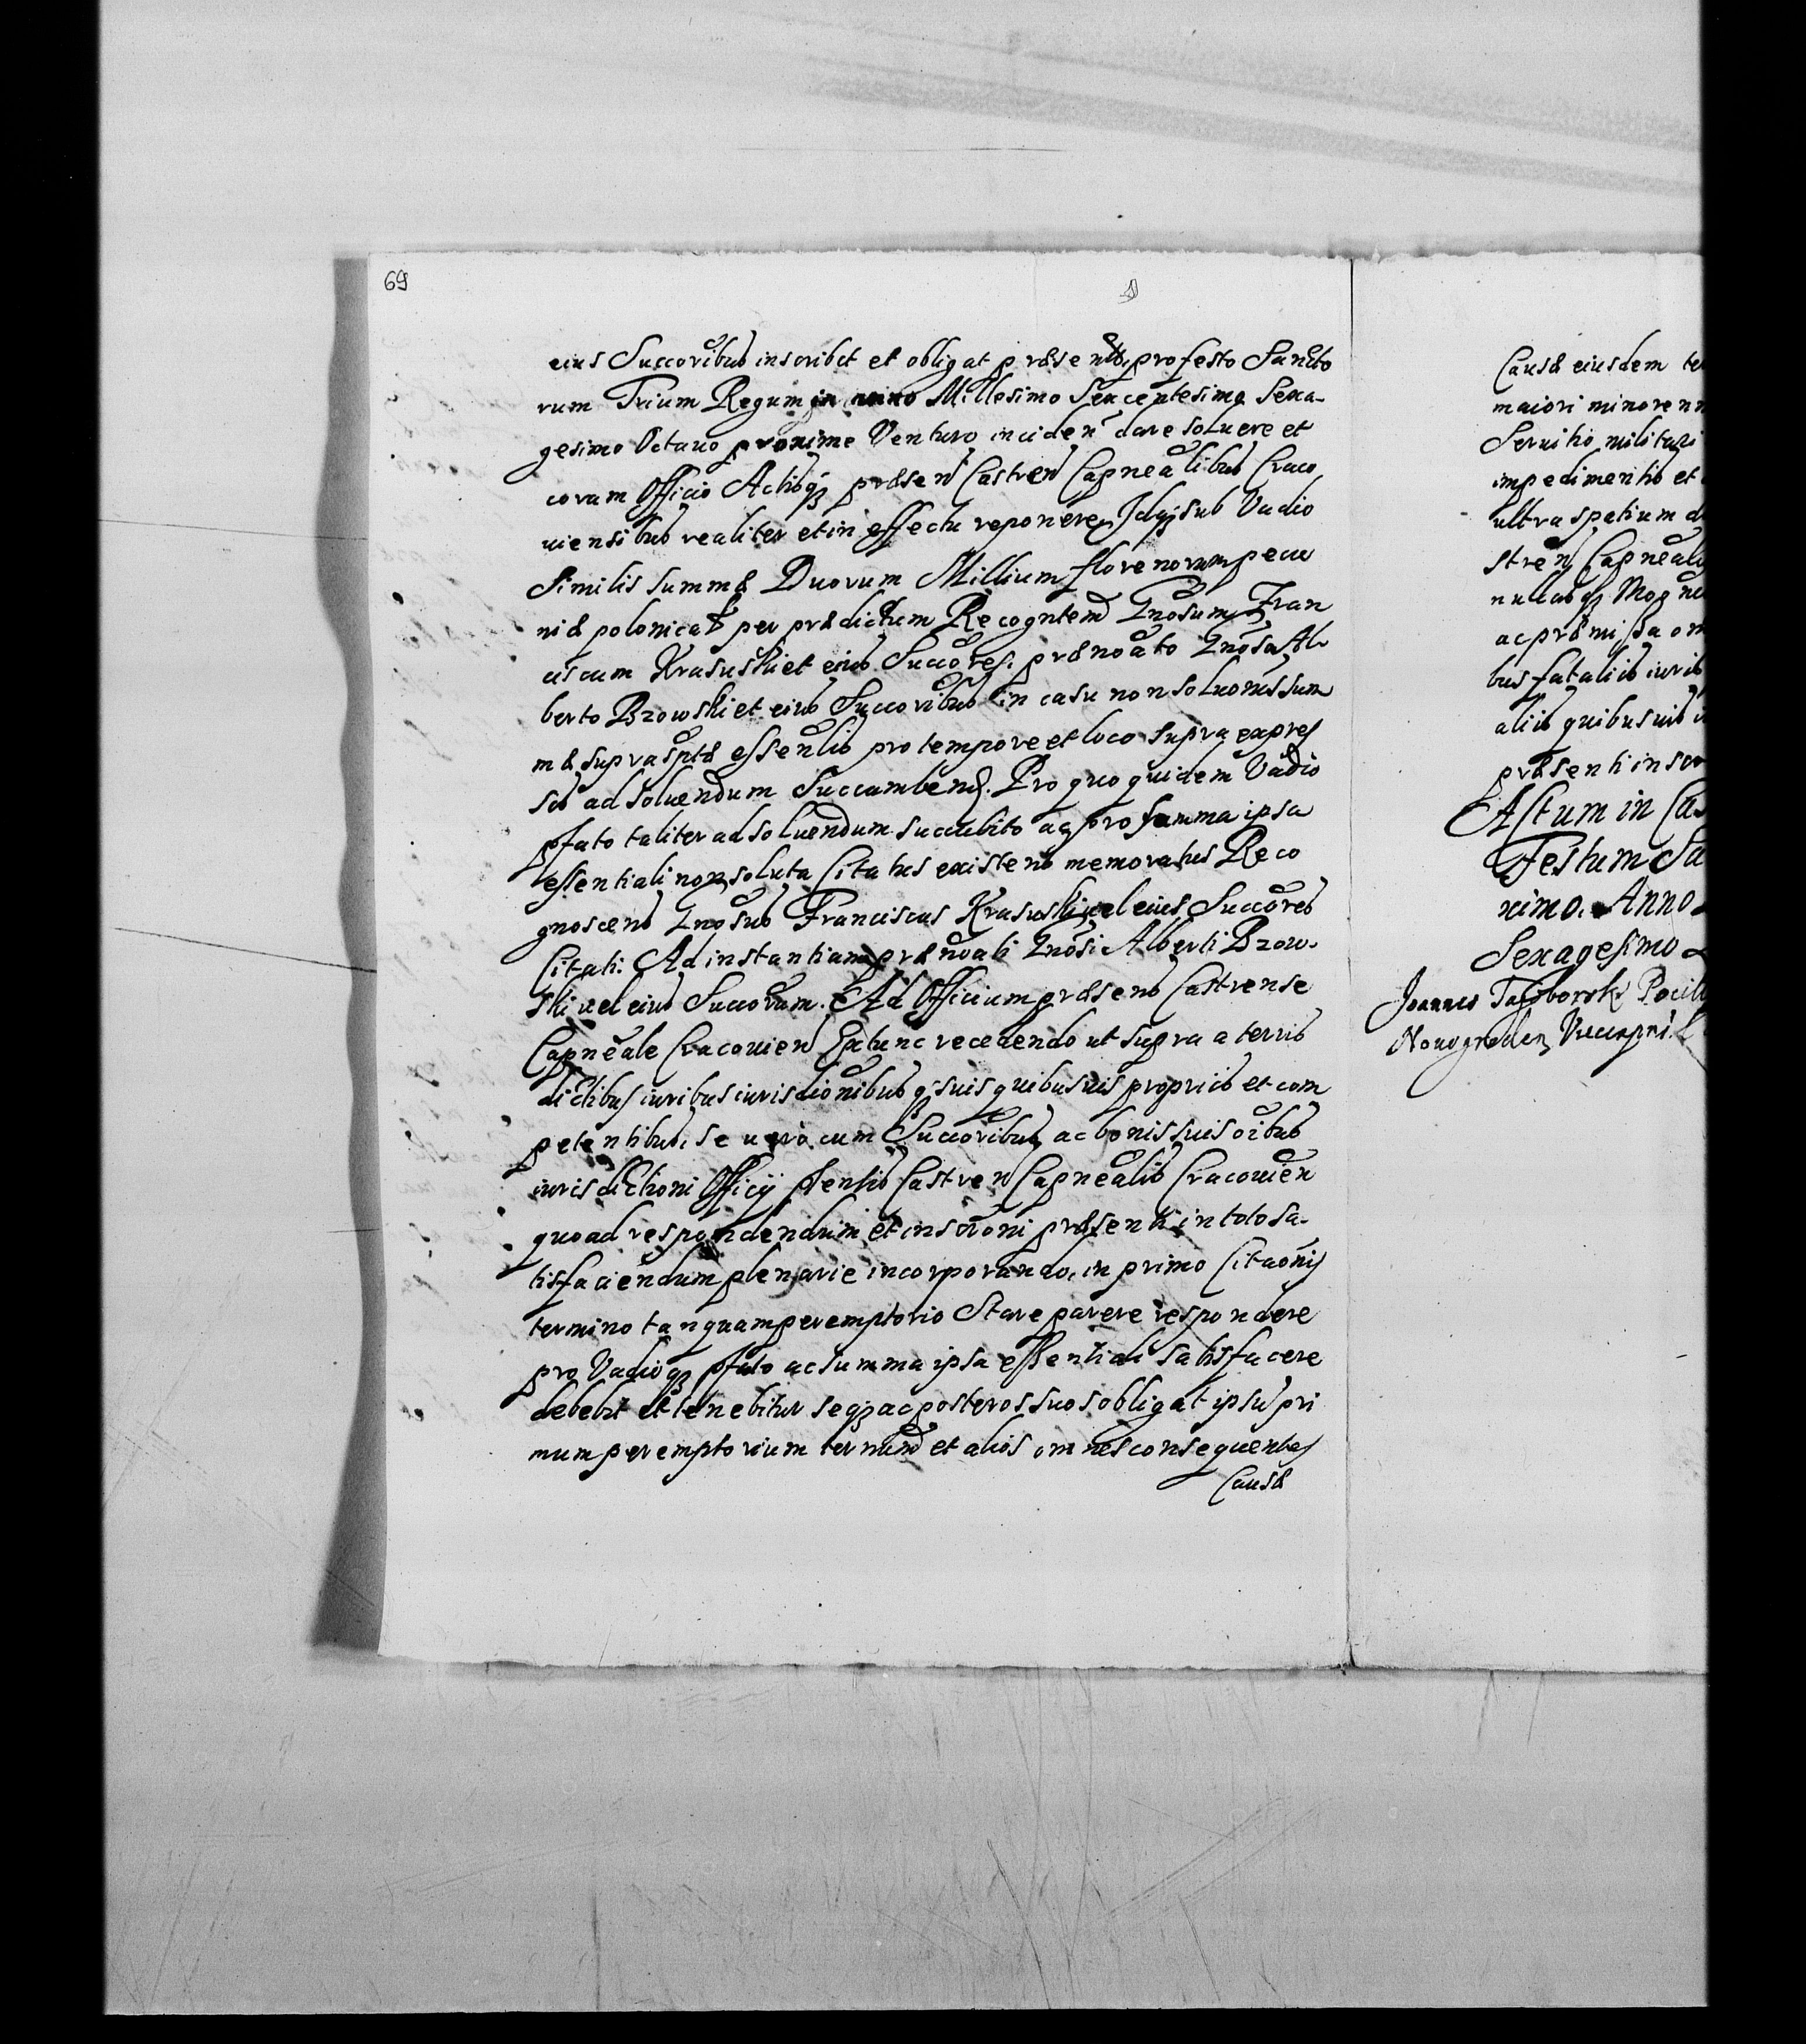 69
eius Succoribus inscribit et obligat præsentibus, pro festo Sancto
rum Trium Regum in anno Millesimo Sexcentesimo Sexa-
gesimo Octauo proxime Venturo inciden dare soluere et
coram Officio Actibusq præsen Castren Capnealibus Craco
uiensibus realiter et in effectu reponere, Idq sub Vadio
Similis summæ Duorum Millium florenorum pecu
niæ polonicał per prædictum Recogntem Gnosum Fran
ciscum Krasuski et eius Succores. prænoato Gnoso Al-
berto Bzowski et eius Succoribus in casu non soluonis sum
mæ suprasptæ essenlis pro tempore et loco supra expres
sis ad soluendum Succumbend. Pro quo quidem Vadio
pfato taliter ad soluendum succubito ac pro summa ipsa
essentiali non soluta Citatus existens memoratus Reco
gnoscens Gnosus Franciscus Krasuski uel eius Succores
Citati. Ad instantiam prænoati Gnosi Alberti Bzow-
ski uel eius Succorum. Ad Officium præsens Castrense
Capneale Cracouien Extunc recedendo ut supra a terris
dictibus iuribus iurisdionibus q suis quibusuis propriis et com
petentibus, se uero cum Succoribus ac bonis suis oibus
iurisdictioni Officij pentis Castren Capnealis Cracouien
quoad respondendum et inscroni præsenti in toto sa-
tisfaciendum plenarie incorporando, in primo Citaonis
termino tanquam peremptorio Stare parere respondere
pro Vadioq pfato ac summa ipsa essentiali satisfacere
debebit et tenebitur seq ac posteros suos obligat ipsu pri
mum peremptorium termind et alios omnes consequentes
Causæ
Causæ eiusdem te
maiori minore n
Seruitio militari
impedimentis et
ultra spatium d
stren Capneali
nullasq Mog
ac præmissa om
bus fataliis iuris
aliis quibusuis i
præsenti inscr
Actum in Cas
Festum Sa
ximo. Anno
Sexagesimo
Joannes Pocill
Nouogroden